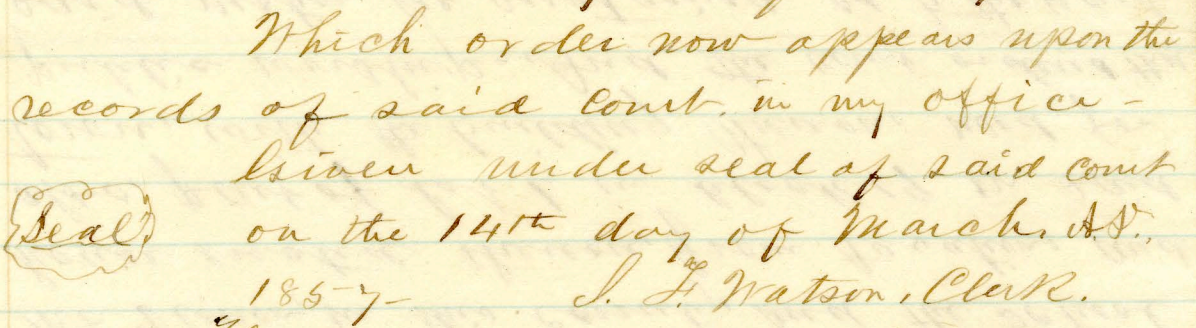 Which order now appears upon the
records of said court. in my office -
Given under seal of said court
Seal on the 14th day of March. A.D.,
1857 - J. F. Watson, Clerk.